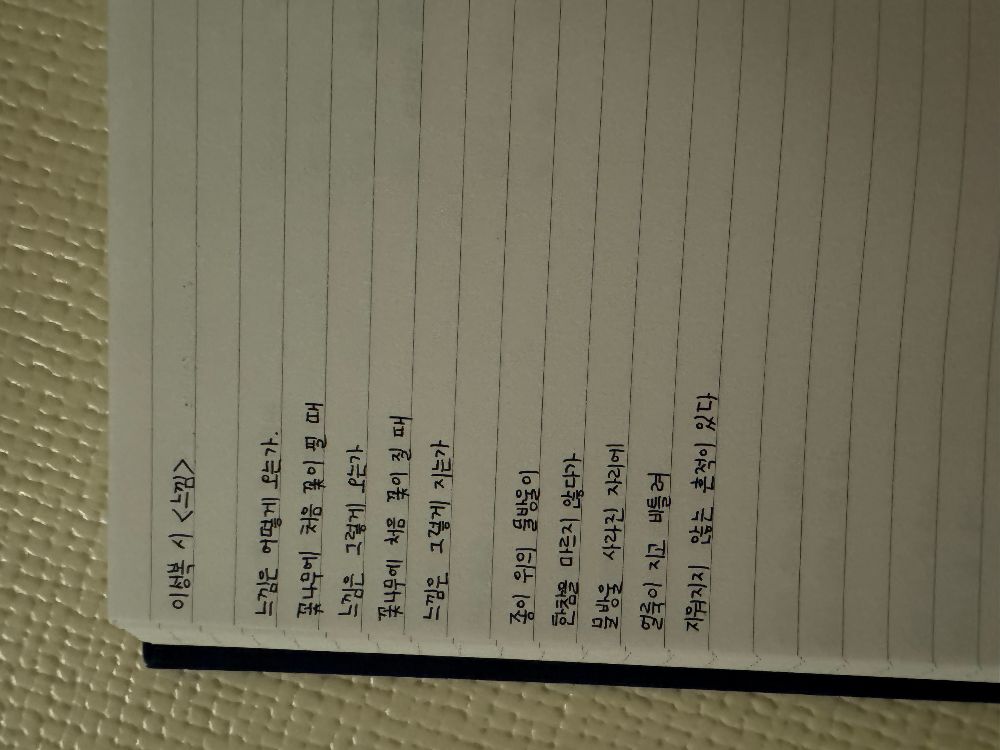 이성복 시 <느낌>
느낌은 어떻게 오는가.
꽃나무에 처음 꽃이 필 때
느낌은 그렇게 오는가
꽃나무에 처음 꽃이 질 때
느낌은 그렇게 지는가
종이 위의 물방울이
한참을 마르지 않다가
물방울 사라진 자리에
얼룩이 지고 비틀려
지워지지 않는 흔적이 있다